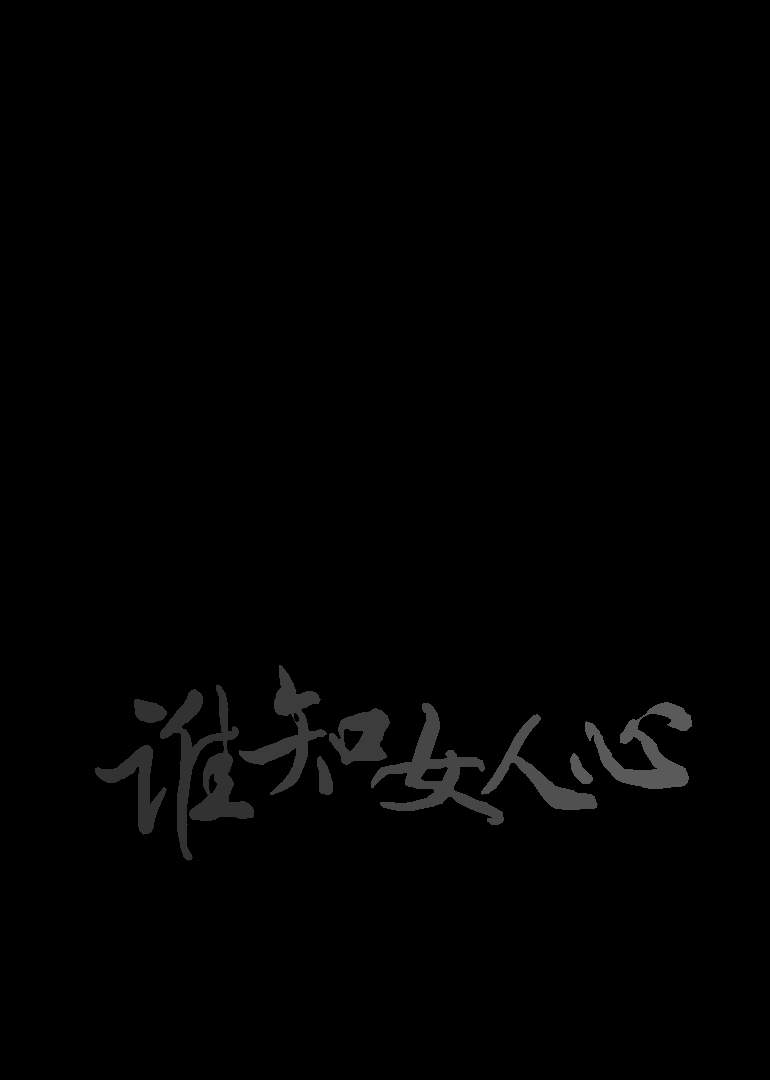 谁知女人心